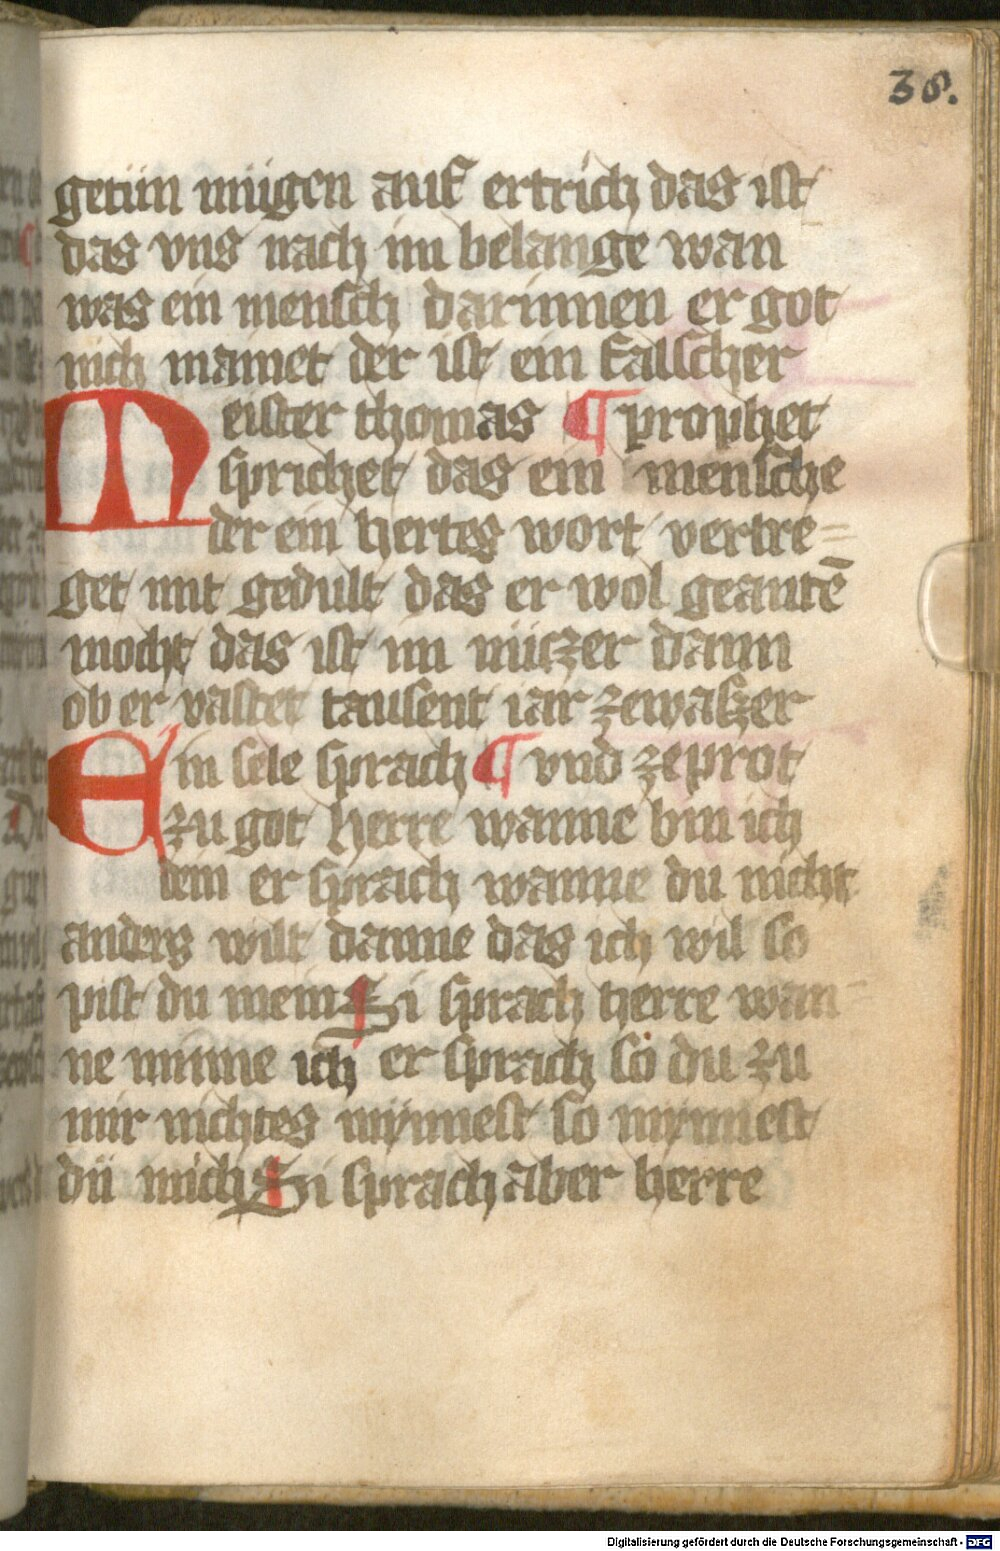 38.
getün mügen auf ertrich das ist
das vns nach im belange wan
was ein mensch darinnen er got
nich mainet der ist ein falscher
Meister thomas ¶ prophet
sprichet das ein mensche
der ein hertes wort vertre=
get mit gedult das er wol geantẽ
mocht das ist im nüczer dann
ob er vastet tausent iar zewaszer
Ein sele sprach ¶ vnd zeprot
zu got herre wanne bin ich
dein er sprach wanne du nicht
anders wilt danne das ich wil so
pist du mein Si sprach herre wan-
ne minne ich er sprach so du zu
mir nichtes mynnest so mynnest
dü mich Si sprach aber herre
Digitalisierung gefördert durch die Deutsche Forschungsgemeinschaft - DFG